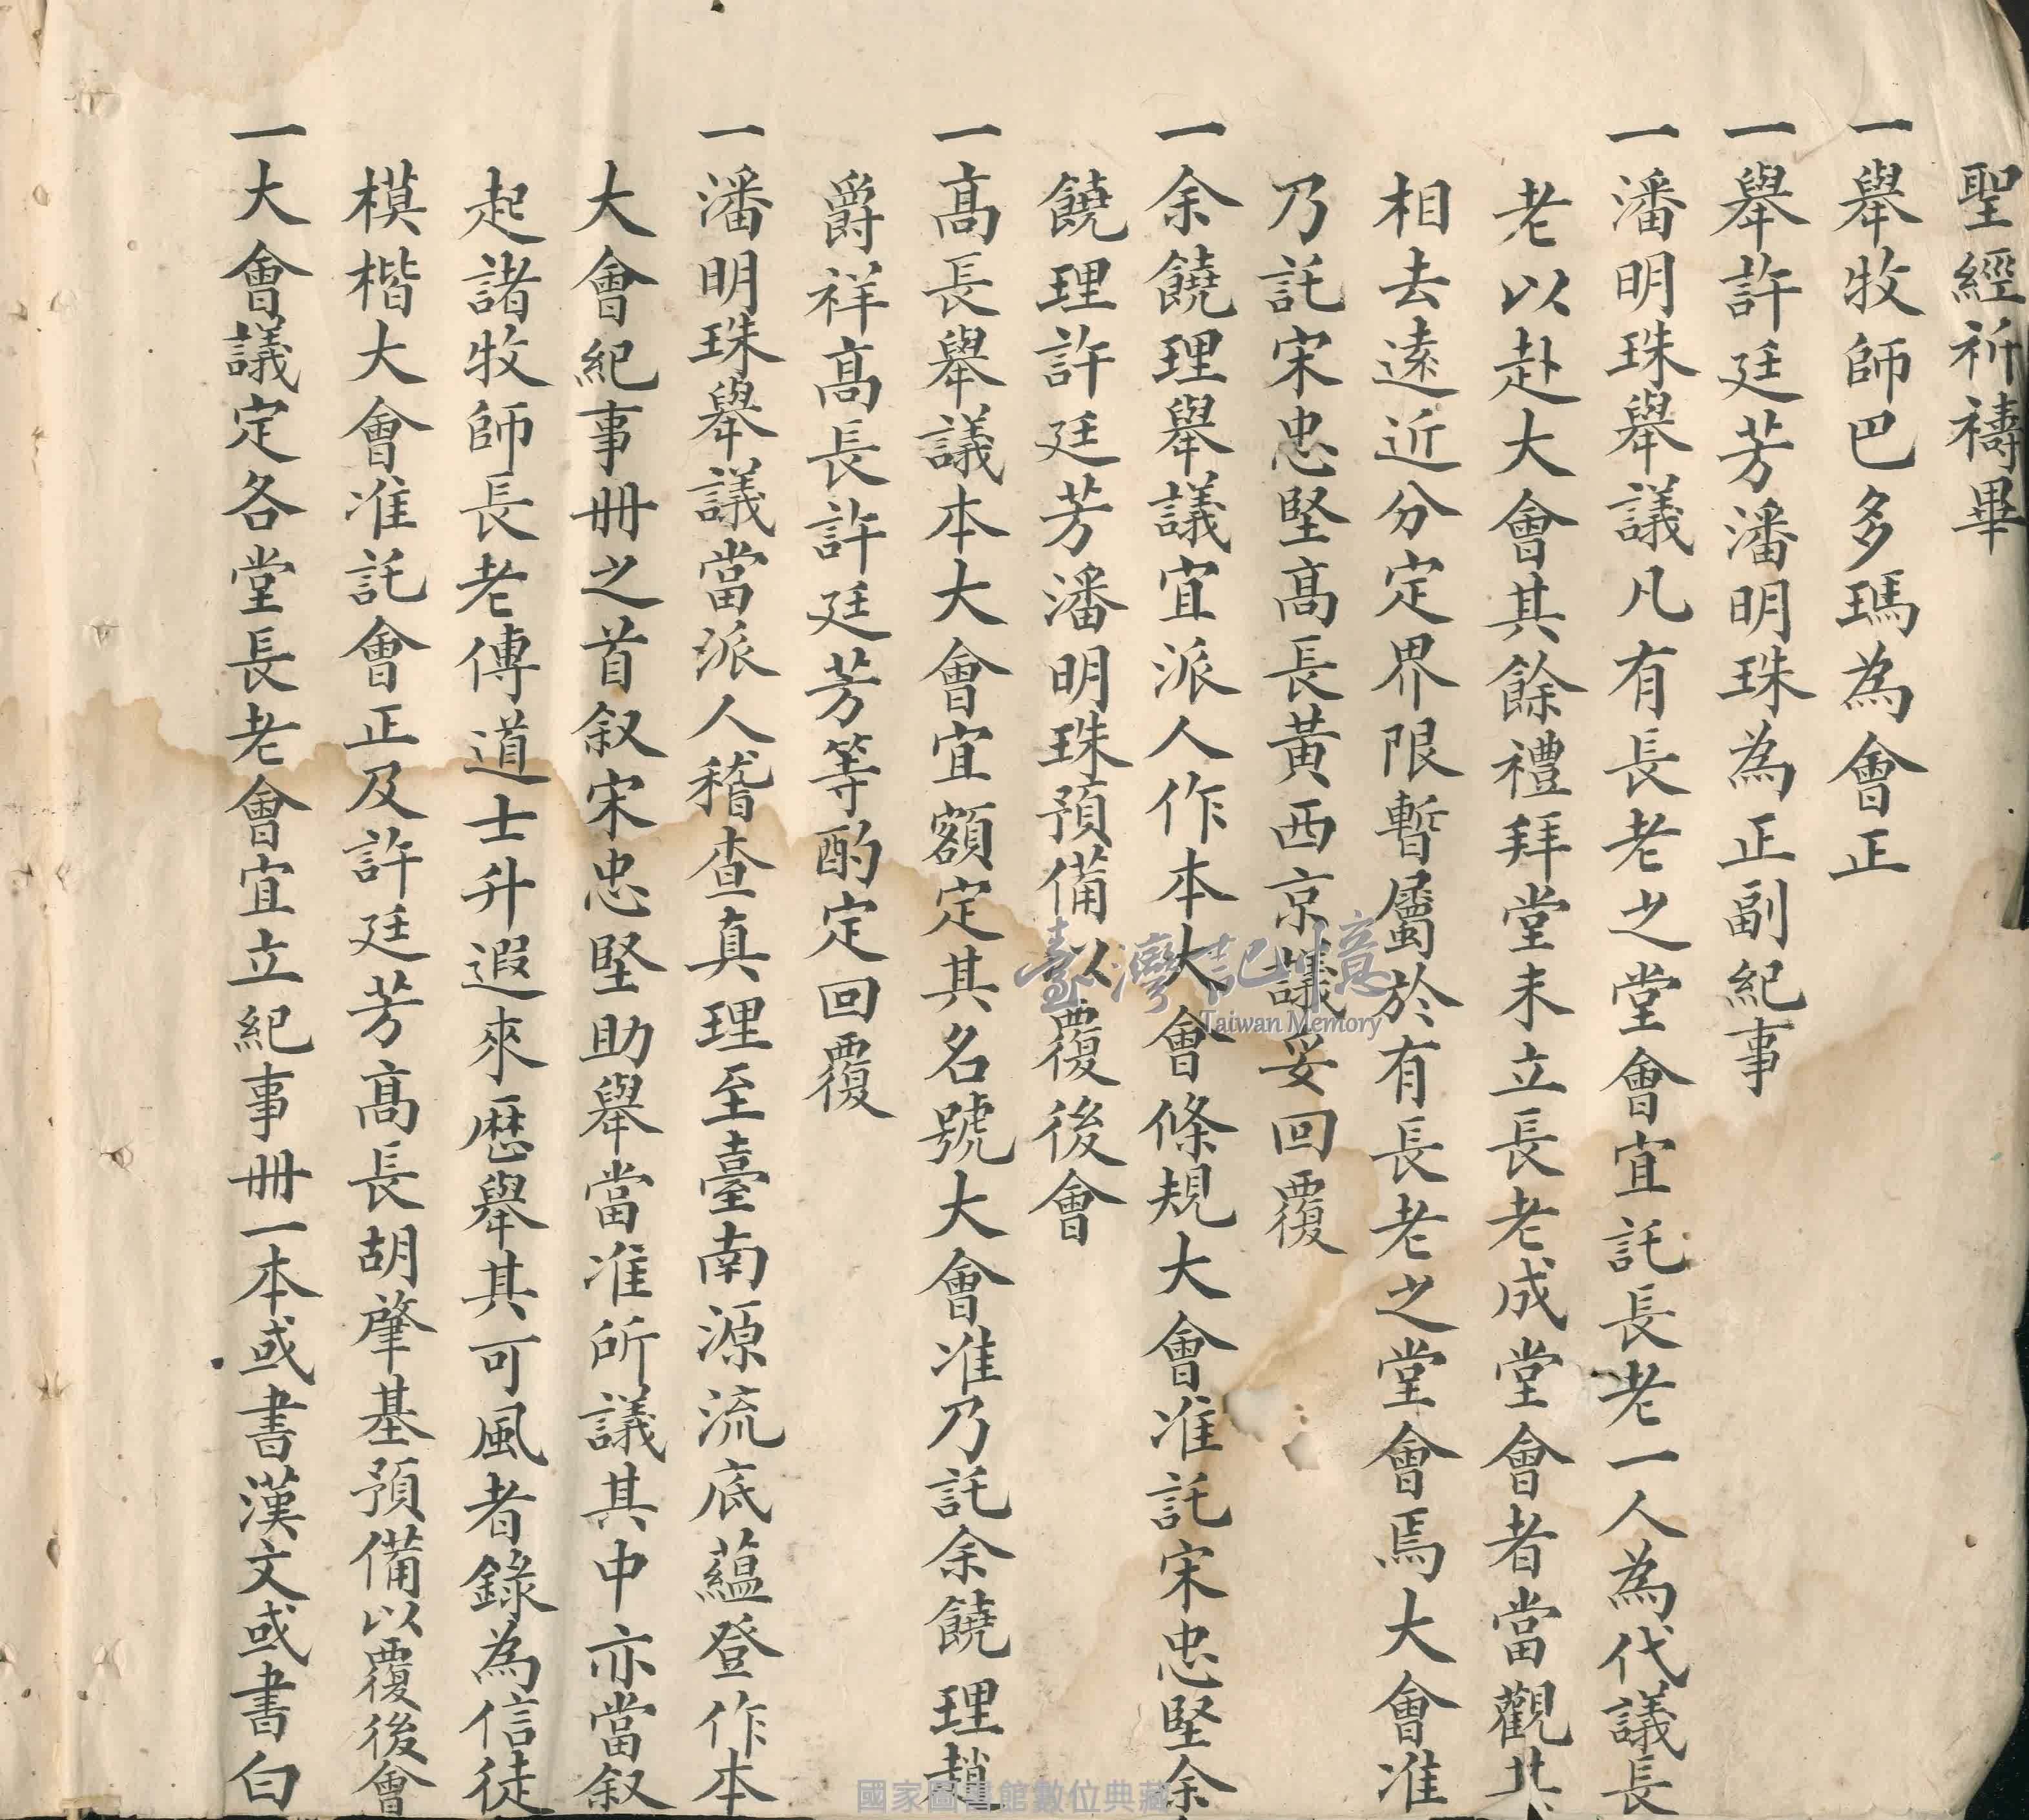 聖經祈禱畢
一舉牧師巴多瑪為會正
一舉許廷芳潘明珠為正副紀事
一潘明珠舉議凡有長老之堂會宜託長老一人為代議長
老以赴大會其餘禮拜堂未立長老成堂會者當觀其
相去遠近分定界限暫屬於有長老之堂會焉大會准
乃託宋忠堅高長黃西京議妥回覆
一余饒理舉議宜派人作本大會條規大會准託宋忠堅余
饒理許廷芳潘明珠預備以覆後會
一高長舉議本大會宜額定其名號大會准乃託余饒理趙
爵祥高長許廷芳等酌定回覆
一潘明珠舉議當派人稽查真理至臺南源流底蘊登作本
大會紀事冊之首叙宋忠堅助舉當准所議其中亦當叙
起諸牧師長老傳道士升遐來歷舉其可風者錄為信徒
模楷大會准託會正及許廷芳高長胡肇基預備以覆後會
一大會議定各堂長老會宜立紀事冊一本或書漢文或書白
臺灣記憶
Taiwan Memory
國家圖書館數位典藏